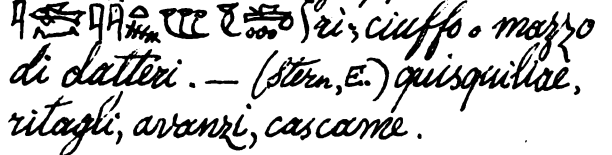 ri; ciuffo o mazzo
di datteri. — (Stern, E..) quisquiliae,
ritagli, avanzi, cascame.